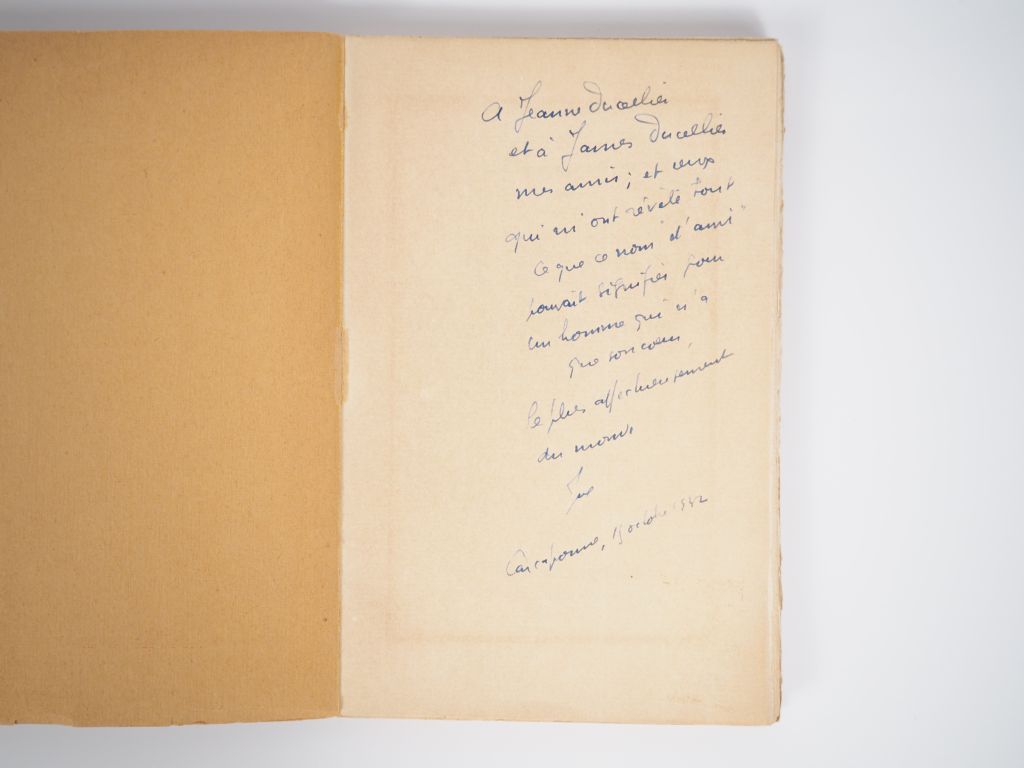 A Jeanne Ducellier
et à James Ducellier
mes amis ; et ceux
qui m'ont révélé tout
ce que ce nom "d'ami"
pouvait signifier pour
un homme qui n'a
que son cœur,
le plus affectueusement
du monde
Carcassonne, 15 octobre 1942